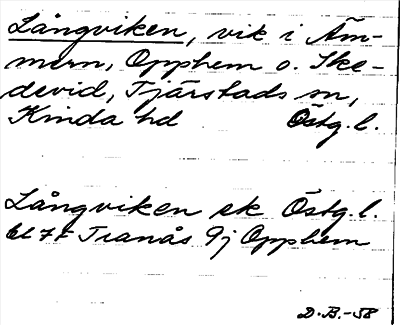 Långviken, vik i Äm-
mern, Opphem o. Ske-
devid, Tjärstads sn,
Kinda hd Östg. l.
Långviken ek Östg. l.
bl 7f Tranås 9j Opphem
D.B.-58